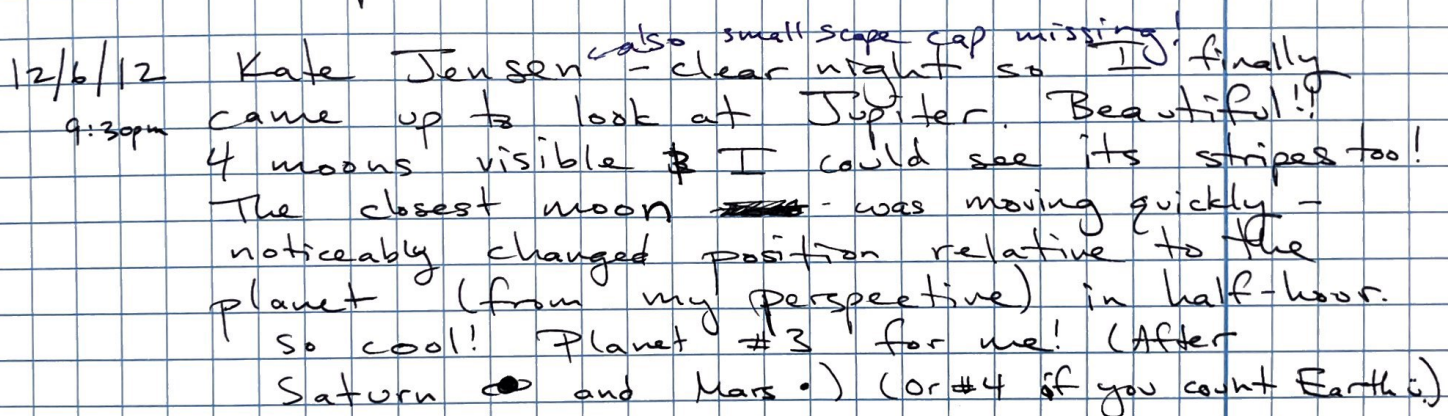 also small scope cap missing!
12/6/12 Kate Jensen - clear night so I finally
9:30pm came up to look at Jupiter. Beautiful!!
4 moons visible & I could see its stripes too!
The closest moon - was moving quickly -
noticeably changed position relative to the
planet (from my perspective) in half-hour.
So cool! Planet #3 for me! (After
Saturn and Mars •) (or #4 if you count Earth :)